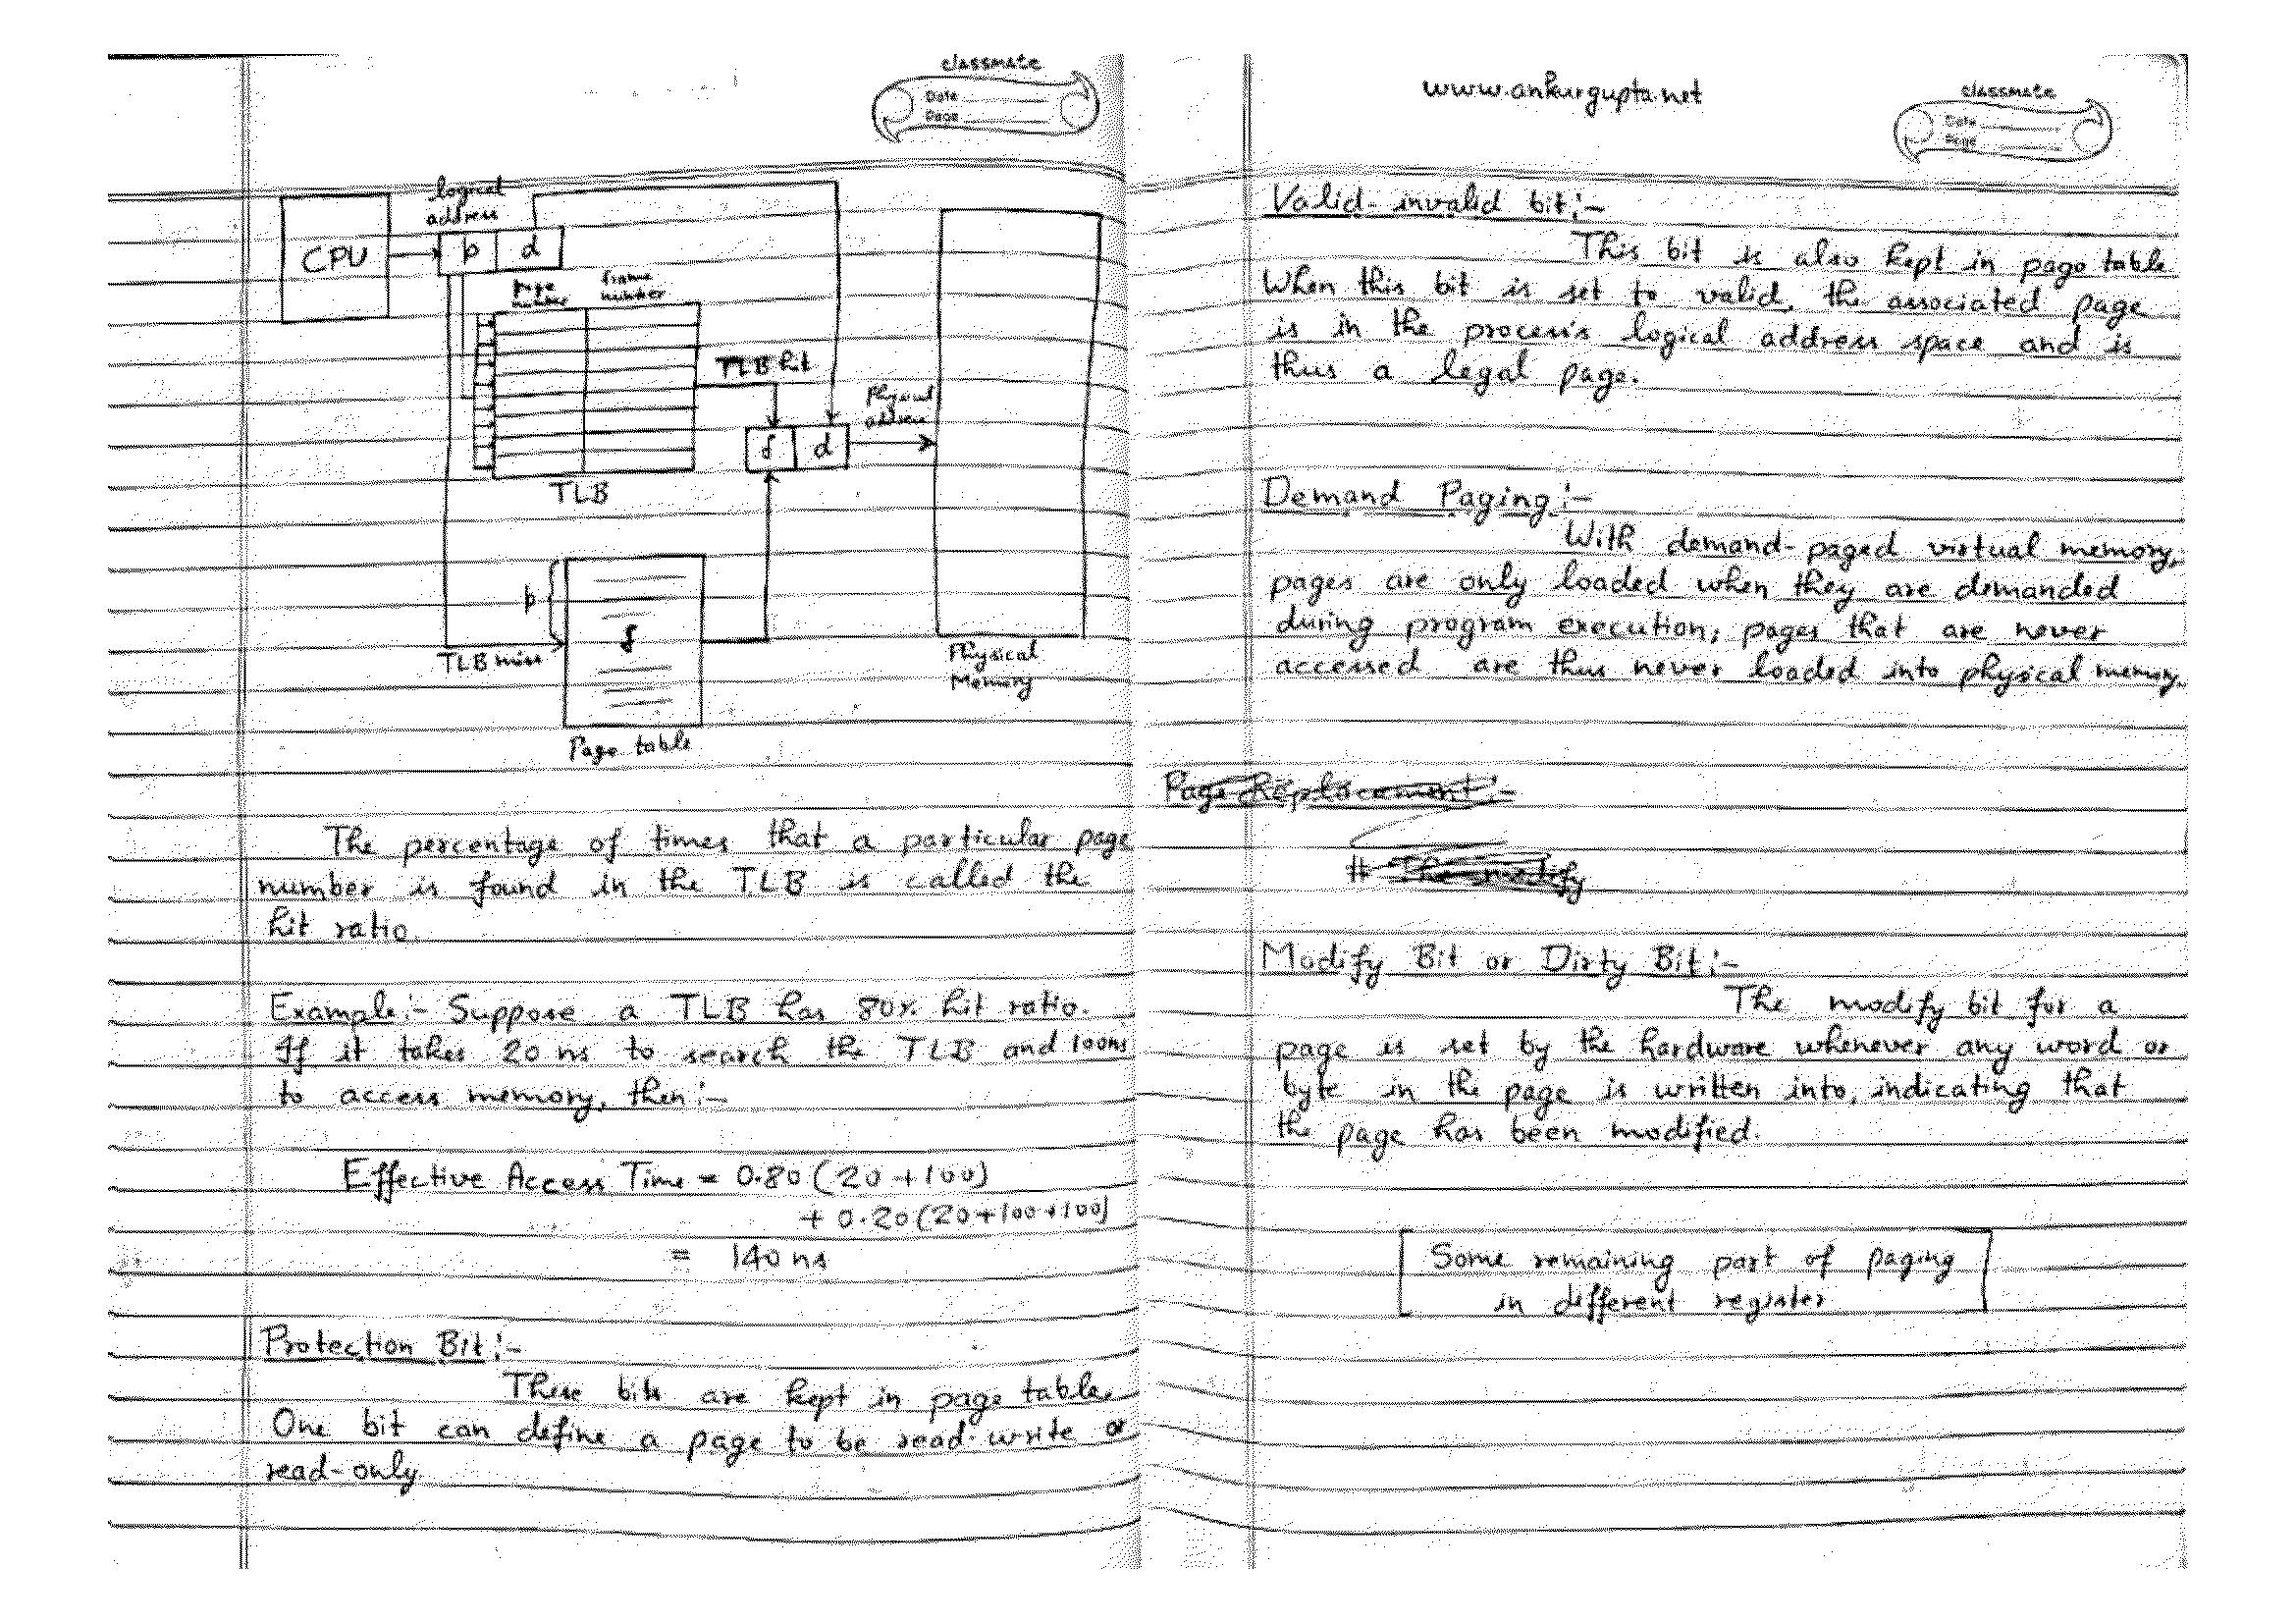 classmate
Date
Page
logical
address
CPU
p d
page number
frame number
TLB hit
physical
address
f d
TLB
p
f
TLB miss
Physical
Memory
Page table
The percentage of times that a particular page
number is found in the TLB is called the
hit ratio.
Example:- Suppose a TLB has 80% hit ratio.
If it takes 20 ns to search the TLB and 100ns
to access memory, then:-
Effective Access Time = 0.80 (20+100)
+ 0.20 (20+100+100)
= 140 ns
Protection Bit:-
These bits are kept in page table.
One bit can define a page to be read-write or
read-only.
www.ankurgupta.net
classmate
Date
Page
Valid-invalid bit:-
This bit is also kept in page table
When this bit is set to valid, the associated page
is in the process's logical address space and is
thus a legal page.
Demand Paging:-
With demand-paged virtual memory,
pages are only loaded when they are demanded
during program execution, pages that are never
accessed are thus never loaded into physical memory.
Page Replacement:-
# The modify
Modify Bit or Dirty Bit:-
The modify bit for a
page is set by the hardware whenever any word or
byte in the page is written into, indicating that
the page has been modified.
Some remaining part of paging
in different register